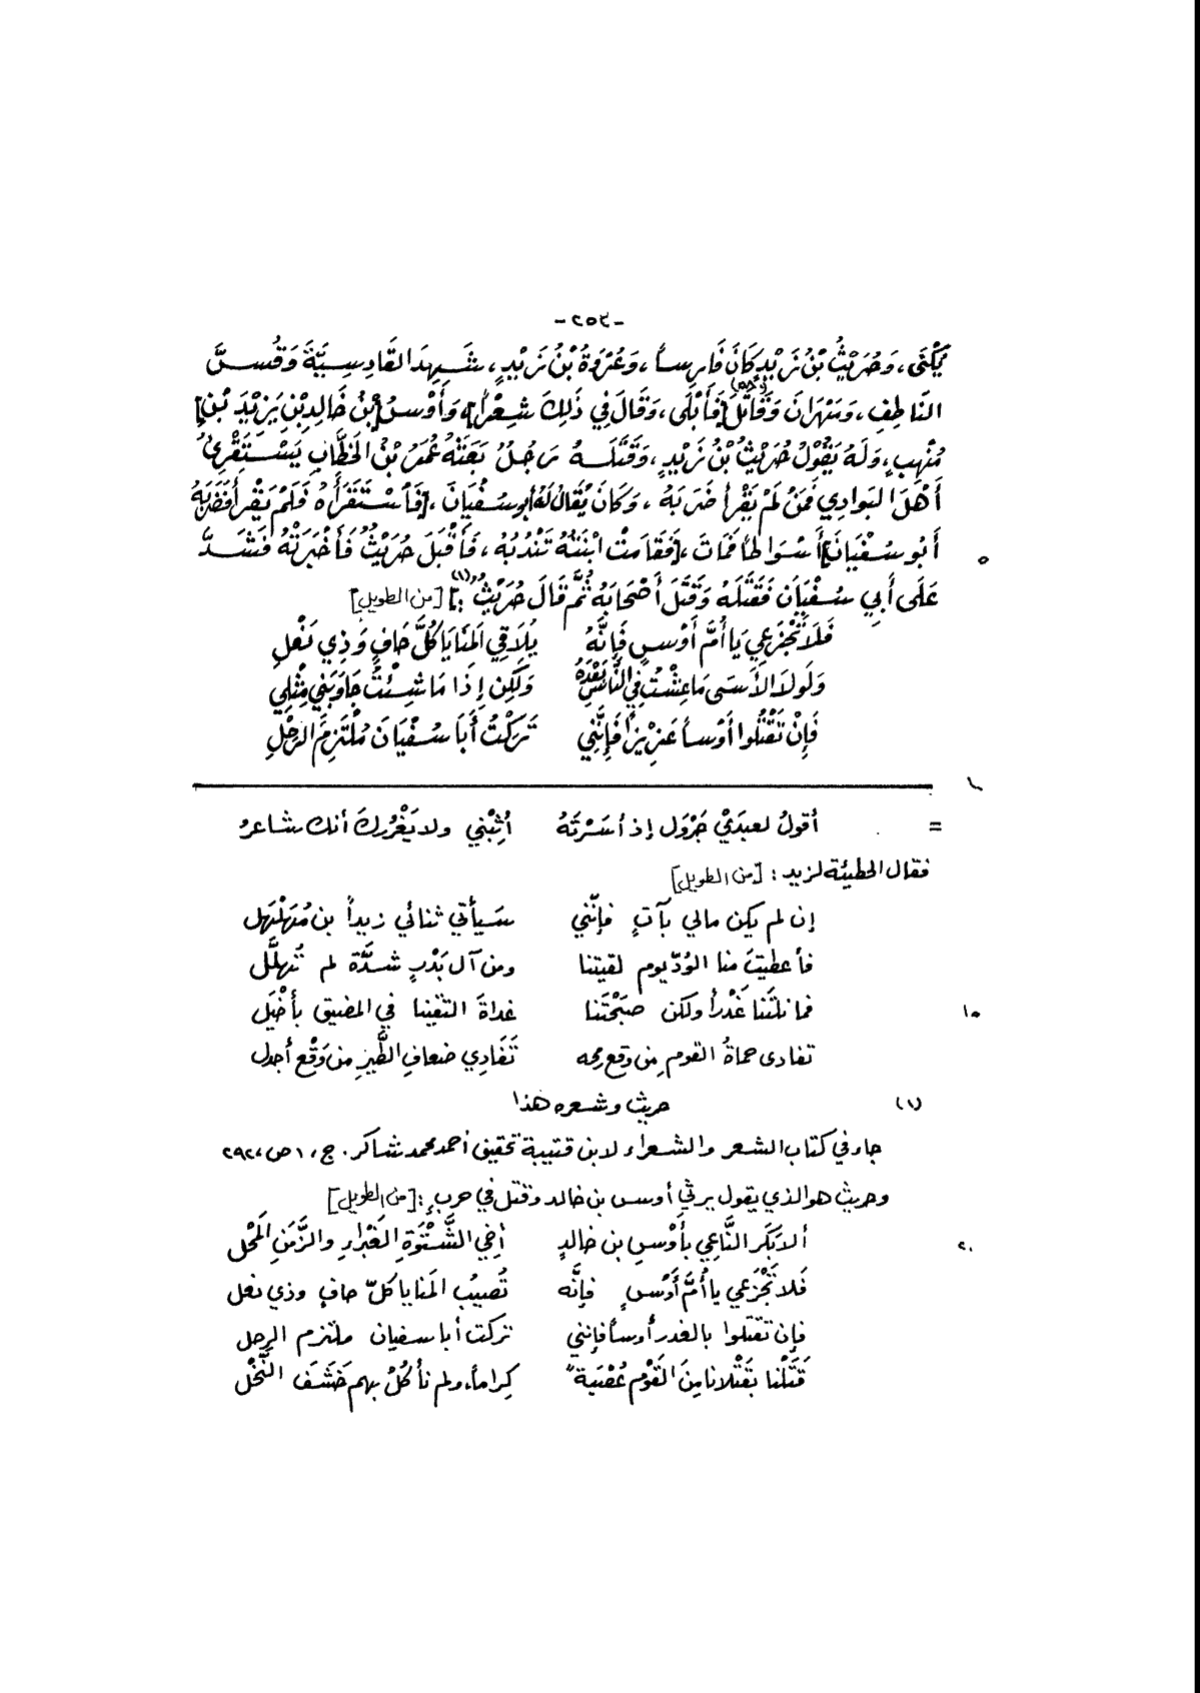 -٢٥٢-
يُكْنَى، وَحُرَيْثُ بْنُ زَيْدٍ كَانَ فَارِساً، وَعُرْوَةُ بْنُ زَيْدٍ، شَهِدَ القَادِسِيَّةَ وَقُسَّ
النَاطِفِ، وَمِهْرَانَ وَقَاتَلَ [فَأَبْلَى، وَقَالَ فِي ذَلِكَ شِعْراً]، وَأَوْسُ [بْنُ خَالِدِ بْنِ يَزِيْدَ بْنِ]
مُنْهِبٍ، وَلَهُ يَقُوْلُ حُرَيْثُ بْنُ زَيْدٍ، وَقَتَلَهُ رَجُلٌ بَعَثَهُ عُمَرُ بْنُ الخَطَّابِ يَسْتَقْرِئُ
أَهْلَ البَوَادِي فَمَنْ لَمْ يَقْرأْ ضَرَبَهُ، وَكَانَ يُقَالُ لَهُ أبو سُفْيَانَ، [فَاْسْتَقَرَأَهُ فَلَمْ يَقْرأ فَضَرَبَهُ
أَبُو سُفْيَانَ] أَسْوَاطاً فَمَاتَ، [فَقَامَتْ ابْنَتُهُ تَنْدُبُهُ، فَأَقْبَلَ حُرَيْثُ فَأَخْبَرَتْهُ فَشَدَّ
٥
عَلَى أَبِي سُفْيَانَ فَقَتَلَهُ وَقَتَلَ أَصْحَابَهُ ثُمَّ قَالَ حُرَيْثُ(١):] [من الطويل]
فَلَا تَجْزَعِي يَا أُمَّ أَوْسٍ فَإِنَّهُ يُلَاقِي المَنَايَا كُلُّ حَافٍ وَذِي نَعْلِ
وَلَولَا الأَسَى مَا عِشْتُ فِي النَّاسِ بَعْدَهُ وَلَكِن إِذَا مَا شِئْتُ جَاوَبَنِي مِثْلِي
فَإِنْ تَقْتُلُوا أَوْساً عَزِيْزاً فَإِنَّنِي تَرَكْتُ أَبَا سُفْيَانَ مُلْتَزِمَ الرَحْلِ
١٠
= أقولُ لعبدَيْ جَرْوَل إذ أسَرْتَهُ أثِبْني ولا يَغْرُرك أنك شاعرُ
فقال الحطيئة لزيد: [من الطويل]
إن لم يكن مالي بآتٍ فإنّني سَيأتي ثنائي زيداً بن مُهَلْهِل
فأعطيتَ منا الوُدّ يوم لقيتنا ومن آل بَدْرٍ شدَّة لم تُهلَّل
فما نلتَنا غَدْراً ولكن صبَحْتَنا غداةَ التقينا في المضيق بأخْيَل
١٥
تفادى حماةُ القوم مِن وقع رمحه تَفَادِي ضعافِ الطَّيرِ من وَقْع أجدل
(١) حريث وشعره هذا
جاء في كتاب الشعر والشعراء لابن قتيبة تحقيق أحمد محمد شاكر. ج، ١ ص، ٢٩٢
وحريث هو الذي يقول يرثي أوس بن خالد وقتل في حربٍ: [من الطويل]
ألا بَكَر النَّاعِي بأَوْسِ بن خالدٍ أخِي الشَّتْوَةِ الغَبْراءِ والزَّمَنِ المَحْل
٢٠
فَلا تَجْزَعي يا أُمَّ أَوْسٍ فإنَّه تُصيبُ المَنايا كلّ حافٍ وذي نعل
فإن تقتلوا بالغدر أوساً فإنني تركت أبا سفيان ملتزم الرحل
قَتَلْنا بقَتْلانا مِنَ القَوْم عُصْبَةً كِراماً، ولم نأكُلْ بهم حَشَفَ النَّخْل